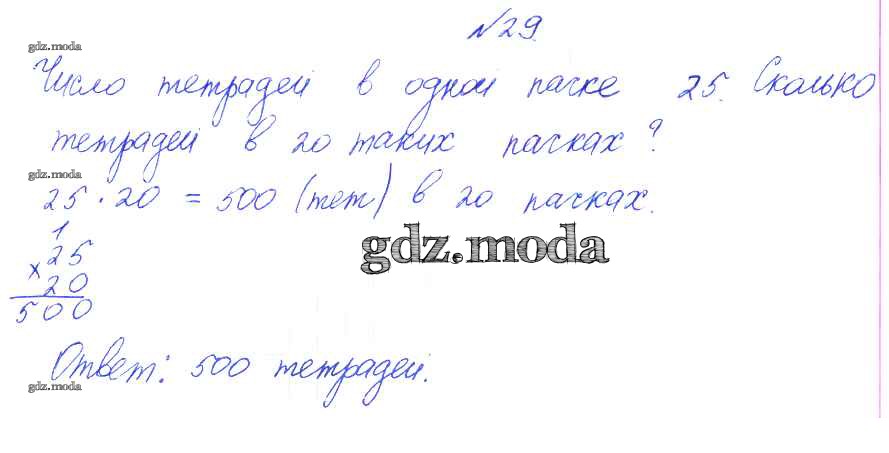 №29.
gdz.moda
Число тетрадей в одной пачке 25. Сколько
тетрадей в 20 таких пачках?
gdz.moda
25 · 20 = 500 (тет) в 20 пачках.
gdz.moda
1
× 25
20
500
Ответ: 500 тетрадей.
gdz.moda